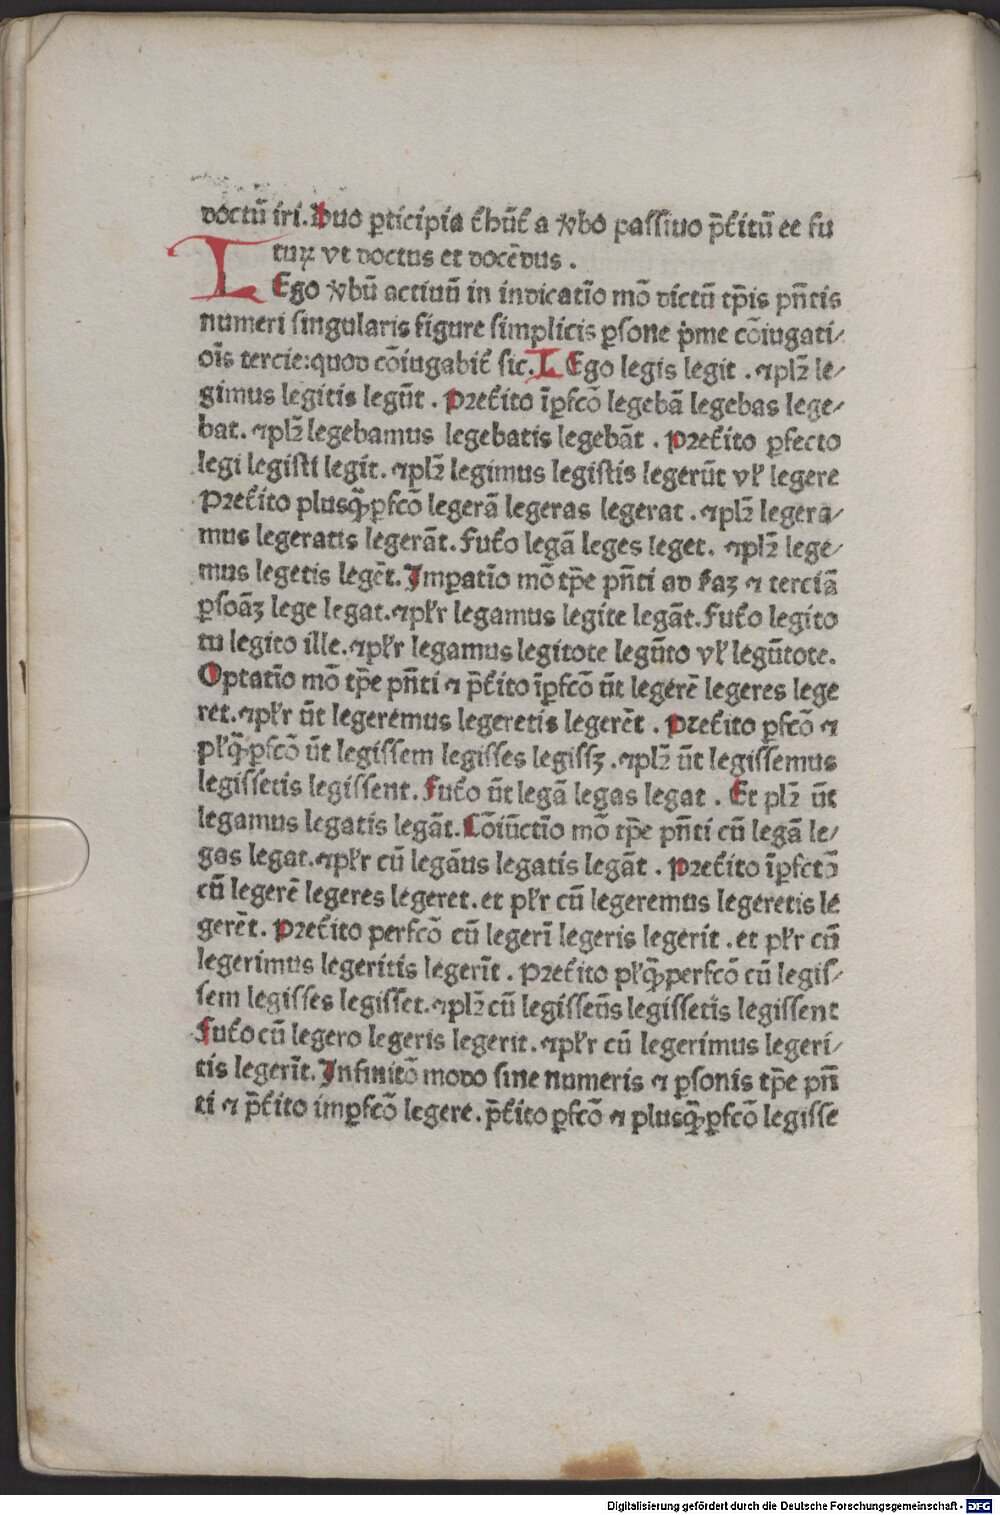 doctū iri. Duo ꝑticipia t̄hūt̄ a v̄bo passiuo p̄t̄itū ee fu
turꝝ vt doctus et docēdus .
LEgo v̄bū actiuū in indicatīo mō dictū tp̄is pn̄tis
numeri singularis figure simplicis ꝑsone p̄me cōiugati/
oīs tercie: quod cōiugabit̄ sic. LEgo legis legit . ⁊plꝛ̄ le/
gimus legitis legūt . Pꝛet̄ito īꝑfcō legebā legebas lege/
bat. ⁊plꝛ̄ legebamus legebatis legebāt . Pꝛet̄ito ꝑfecto
legi legisti legit. ⁊plꝛ̄ legimus legistis legerūt vł legere
Pꝛet̄ito plusꝙ̄ꝑfcō legerā legeras legerat . ⁊plꝛ̄ legera/
mus legeratis legerāt. Fut̄o legā leges leget. ⁊plꝛ̄ lege/
mus legetis legēt. Imꝑatīo mō tp̄e pn̄ti ad ẜaꝫ ⁊ terciā
ꝑsoāꝫ lege legat. ⁊płr legamus legite legāt. Fut̄o legito
tu legito ille. ⁊płr legamus legitote legūto vł legūtote.
Optatīo mō tp̄e pn̄ti ⁊ p̄t̄ito īꝑfcō ūt legerē legeres lege
ret. ⁊płr ūt legeremus legeretis legerēt . Pꝛet̄ito ꝑfcō ⁊
płꝙ̄ꝑfcō ūt legissem legisses legissꝫ . ⁊plꝛ̄ ūt legissemus
legissetis legissent. Fut̄o ūt legā legas legat . Et plꝛ̄ ūt
legamus legatis legāt. Cōiūctīo mō tp̄e pn̄ti cū legā le/
gas legat. ⁊płr cū legāus legatis legāt . Pꝛet̄ito īꝑfctō
cū legerē legeres legeret. et płr cū legeremus legeretis le
gerēt. Pꝛet̄ito perfcō cū legerī legeris legerit . et płr cū
legerimus legeritis legerīt . Pꝛet̄ito płꝙ̄perfcō cū legis/
sem legisses legisset. ⁊plꝛ̄ cū legissēus legissetis legissent
Fut̄o cū legero legeris legerit. ⁊płr cū legerimus legeri/
tis legerīt. Infinitō modo sine numeris ⁊ ꝑsonis tp̄e pn̄
ti ⁊ p̄t̄ito imꝑfcō legere. p̄t̄ito ꝑfcō ⁊ plusꝙ̄ꝑfcō legisse
Digitalisierung gefördert durch die Deutsche Forschungsgemeinschaft - DFG